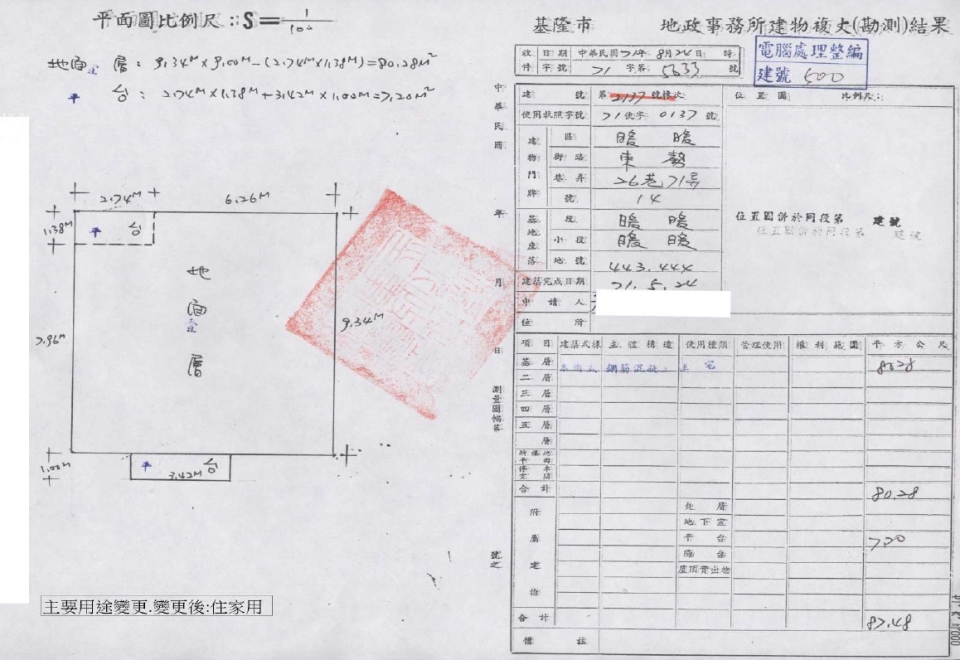 平面圖比例尺：S=1/100
地面層：9.34M×9.00M-(2.74M×1.38M)=80.28M²
平台：2.74M×1.38M+3.42M×1.00M=7.20M²
2.74M
6.26M
1.38M
平台
地面層
7.96M
9.34M
1.00M
平台
3.42M
主要用途變更.變更後:住家用
中華民國 年 月 日
測量圖幅第
號之
基隆市 地政事務所建物複丈(勘測)結果
收件 日期 中華民國71年8月24日 時
字號 71 字第 5633 號
電腦處理整編
建號 500
建號 第 2137 號
使用執照字號 71使字 0137 號
建物門牌 區 暖暖
街路 東勢
巷弄 26巷71弄
號 14
基地座落 段 暖暖
小段 暖暖
地號 443.444
建築完成日期 71.5.24
申請人
住所
位置圖 比例尺：
位置圖併於同段第 建號
位置圖併於同段第 建號
項目 建築式樣 主體構造 使用種類 管理使用 權利範圍 平方公尺
基層 鋼筋混凝土 住宅 80.28
二層
三層
四層
五層
層
合計 80.28
附屬建物
地下室
平台 7.20
陽台
屋頂突出物
合計 87.48
備註